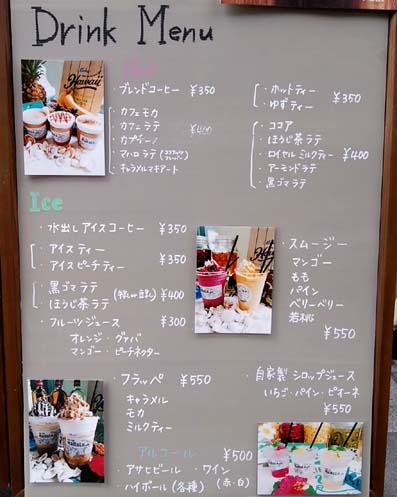 Drink Menu
Hot
・ブレンドコーヒー ¥350
・カフェモカ
・カフェラテ
・カプチーノ
・マハロラテ
・キャラメルマキアート
¥400
・ホットティー
・ゆずティー
¥350
・ココア
・ほうじ茶ラテ
・ロイヤルミルクティー
・アーモンドラテ
・黒ゴマラテ
¥400
Ice
・水出しアイスコーヒー ¥350
・アイスティー
・アイスピーチティー
¥350
・黒ゴマラテ
・ほうじ茶ラテ
¥400
・フルーツジュース ¥300
オレンジ・グァバ
マンゴー・ピーチネクター
・スムージー
マンゴー
もも
パイン
ベリーベリー
¥550
・フラッペ ¥550
キャラメル
モカ
ミルクティー
・自家製シロップジュース
いちご・パイン・ピオーネ
¥550
アルコール ¥500
・アサヒビール ・ワイン
・ハイボール(各種) (赤・白)
Hawaii